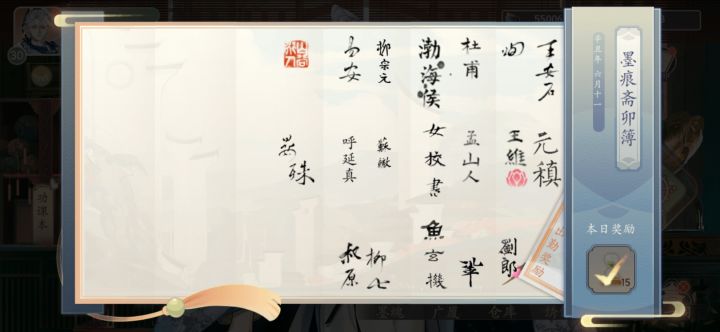 墨痕斋卯簿
辛丑年 六月十一
本日奖励
15
出勤奖励
王安石
元稹
王維
劉郎
杜甫
孟山人
渤海侯
女校書
魚玄機
柳宗元
蘇轍
柳七
易安
呼延真
叔原
功课本
30
仓库